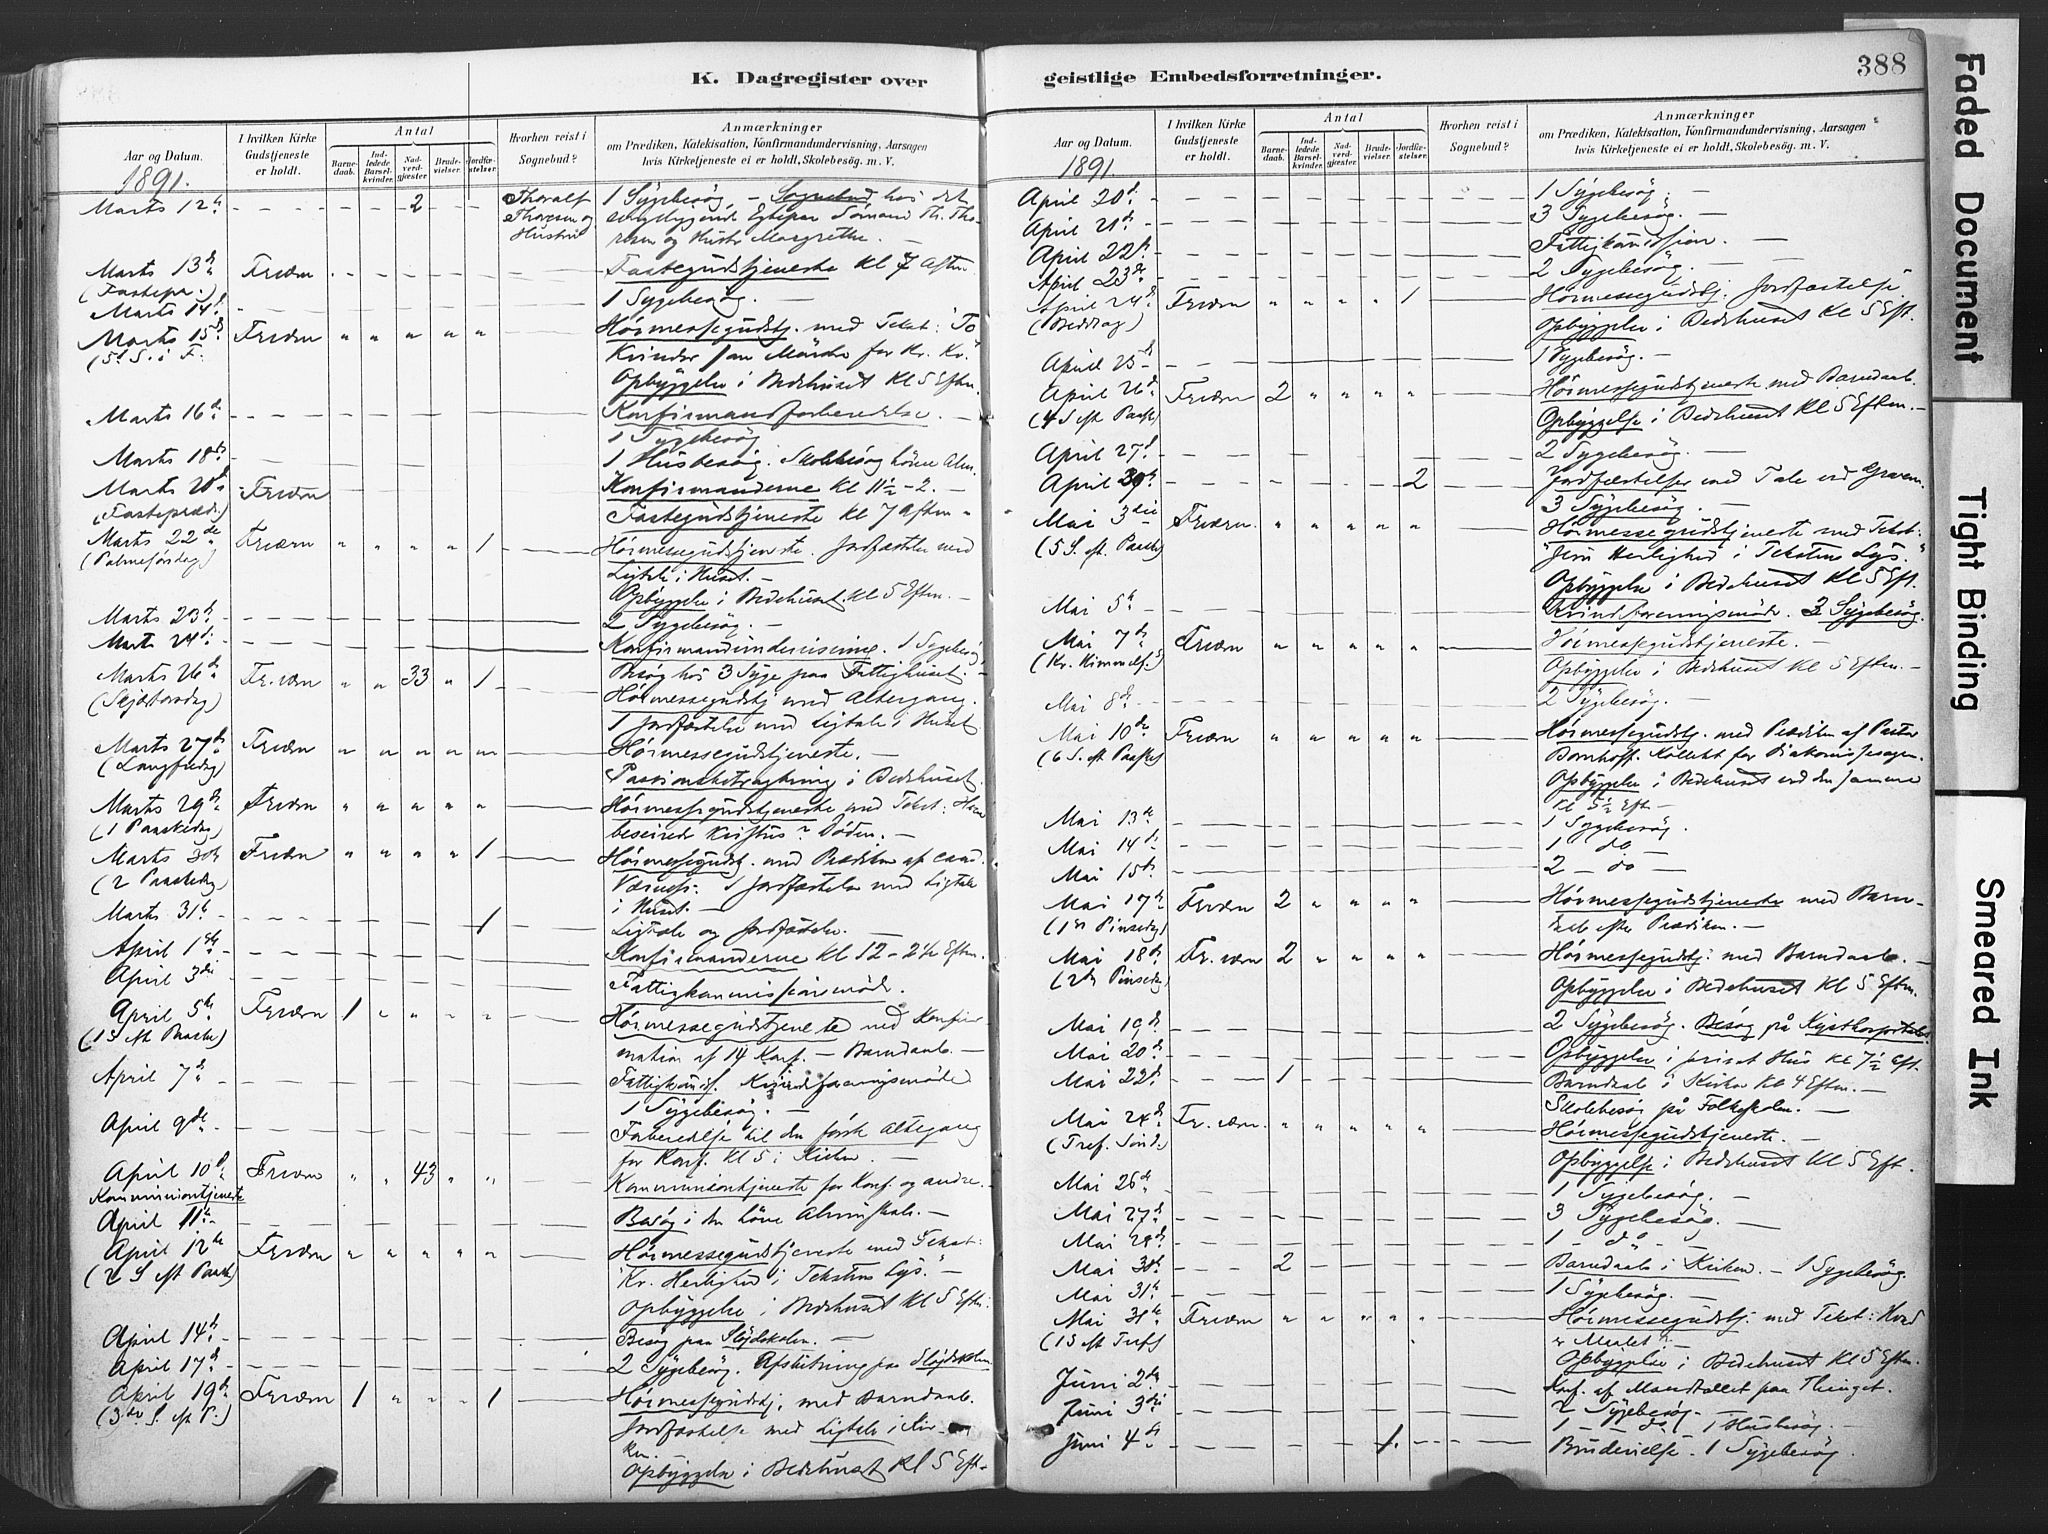 K. Dagregister over
Aar og Datum.
I hvilken Kirke Gudstjeneste er holdt.
Antal
Barnedaab.
Indledede Barselkvinder.
Nadverdgjester
Brudevielser.
Jordfæstelser
Hvorhen reist i Sognebud?
Anmærkninger
om Prædiken, Katekisation, Konfirmandundervisning, Aarsagen
hvis Kirketjeneste ei er holdt, Skolebesög. m. V.
1891.
Marts 12te 2 Thoralf 1 Sygebesøg, – Sognebud hos det
Thoresen og sengeliggende Egtepar Tømmand Th. Tho-
Hustru resen og Hustr Margrethe. –
Marts 13de Frværn Fastegudstjeneste Kl 7 Aften
(Fastepr.) 1 Sygebesøg. –
Marts 14de
Marts 15de Frværn " " " " " Høimessegudstj. med Tekst: "To
(5te S. i F. Kvinder
Opbyggelse i Bedehuset Kl 5 Eftm.
Marts 16de Konfirmandforberedelse. –
1 Sygebesøg
Marts 18de 1 Husbesøg. Skolebesøg høiere Alm.
Marts 20de Frværn Konfirmanderne Kl 11½ – 2. –
(Fasteprædk. Fastegudstjeneste Kl 7 Aften "
Marts 22de Frværn " " " " 1 Høimessegudstjeneste. Jordfæstelse med
(Palmesøndag) Ligtale i Huset. –
Opbyggelse i Bedehuset. Kl 5 Eftm. –
Marts 23de 2 Sygebesøg. –
Marts 24de Konfirmandundervisning. 1 Sygebesøg
Marts 26de Fr.værn " " 33 " 1 Besøg hos 3 Syge paa Fattighuset. –
(Skjærtorsdag) Høimessegudstj med Altergang.
1 Jordfæstelse med Ligtale i Huset
Marts 27de Frværn " " " " " Høimessegudstjeneste. –
(Langfredag) Passionsbetragtning i Bedehuset.
Marts 29de Frværn " " " " " Høimessegudstjeneste med Tekst:
(1 Paaskedag) beseirede Kristus Døden. –
Marts 30te Frværn " " " " 1 Høimessegudstj. med Prædiken af cand.
(2 Paaskedag) 1 Jordfæstelse med Ligtale
i Huset. –
Marts 31te 1 Ligtale og Jordfæstelse. –
April 1ste Konfirmanderne Kl 12 – 2 Eftm.
April 3die Fattigkommissionsmøde.
April 5te Frværn 1 " " " " Høimessegudstjeneste med Konfir-
(1 S eft Paaske) mation af 14 Konf. – Barndaab. –
April 7de Fattigkomss. Kvindeforeningsmøde
1 Sygebesøg. –
April 9de Forberedelse til den første Altergang
for Konf. Kl 5 i Kirken. –
April 10de Frværn " " 43 " " Kommuniontjeneste for Konf. og andre.
Kommuniontjeneste
April 11te Besøg i den høiere Almuskole. –
April 12te Frværn " " " " " Høimessegudstjeneste med Tekst:
(2 S eft Paaske) "Kr. Herlighed i Tekstens Lys." –
Opbyggelse i Bedehuset Kl 5 Eftm:
April 14de Besøg paa Sløjdskolen. –
April 17de 2 Sygebesøg. Afslutning paa Sløjdskolen.
April 19de Frværn 1 " " " 1 Høimessegudstj, med Barndaab.
(3die S. eft P.) Jordfæstelse med Ligtale i Kir-
ken.
Opbyggelse i Bedehuset Kl 5 Eft.
geistlige Embedsforretninger.
388
Aar og Datum.
I hvilken Kirke Gudstjeneste er holdt.
Antal
Barnedaab.
Indledede Barselkvinder.
Nadverdgjester
Brudevielser.
Jordfæstelser.
Hvorhen reist i Sognebud?
Anmærkninger
om Prædiken, Katekisation, Konfirmandundervisning, Aarsagen
hvis Kirketjeneste ei er holdt, Skolebesög. m. V.
1891
April 20de 1 Sygebesøg. –
April 21de 3 Sygebesøg. –
April 22de Fattigkomission. –
April 23de 2 Sygebesøg. –
April 24de Frværn " " " " 1 Høimessegudstj: Jordfæstelse
(Beddag) Opbyggelse i Bedehuset Kl 5 Eft.
April 25de 1 Sygebesøg. –
April 26de Frværn 2 " " " " Høimessegudstjeneste med Barndaab.
(4 S eft Paaske) Opbyggelse i Bedehuset Kl 5 Eftm. –
April 27de 2 Sygebesøg. –
April 30te 2 Jordfæstelser med Tale ved Graven.
3 Sygebesøg. –
Mai 3die Frværn. " " " " " Høimessegudstjeneste med Tekst:
(5 S. eft. Paaske) "Jesu Herlighed i Tekstens Lys."
Opbyggelse i Bedehuset Kl 5 Eft.
Mai 5te Kvindeforeningsmøde. 2 Sygebesøg.
Mai 7de Frværn " " " " " Høimessegudstjeneste. –
(Kr. Himmelf.) Opbyggelse i Bedehuset Kl 5 Eftm. –
Mai 8de 2 Sygebesøg. –
Mai 10de Frværn " " " " " Høimessegudstj. med Prædiken af Pastor
(6 S. eft Paaske) Bornhoff. Kollekt for Diakonissesagen.
Opbyggelse i Bedehuset ved den samme
Kl 5½ Eft –
Mai 13de 1 Sygebesøg.
Mai 14de 1 do –
Mai 15de 2 – do –
Mai 17de Frværn 2 " " " " Høimessegudstjeneste med Barn-
(1ste Pinsedag) daab efter Prædiken. –
Mai 18de Fr. værn 2 " " " " Høimessegudstj: med Barndaab. –
(2den Pinsedag) Opbyggelse i Bedehuset Kl 5 Eftm.
Mai 19de 2 Sygebesøg. Besøg på Kysthospitalet
Mai 20de Opbyggelse i privat Hus Kl 7½ Eft.
Mai 22de 1 Barndaab i Kirken Kl 4 Eftm. –
Skolebesøg på Folkeskolen. –
Mai 24de Fr. værn. " " " " " Høimessegudstjeneste. –
(Tref. Sønd.) Opbyggelse i Bedehuset Kl 5 Eft.
Mai 26de 1 Sygebesøg. –
Mai 27de 3 Sygebesøg. –
Mai 29de 1 – do –
Mai 30te 2 Barndaab i Kirken. – 1 Sygebesøg.
Mai 31te 1 Sygebesøg. –
Mai 31te Frværn " " " " " Høimessegudstj: med Tekst: Hvad
(1 S eft Tref) er Maalet? –
Opbyggelse i Bedehuset Kl 5 Eftm.
Juni 2den Konf. af Mandtallet paa Thinget.
Juni 3die 2 Sygebesøg –
1 – do 1 Husbesøg. –
Juni 4de 1. Brudevielse. 1 Sygebesøg.
Faded Document
Tight Binding
Smeared Ink